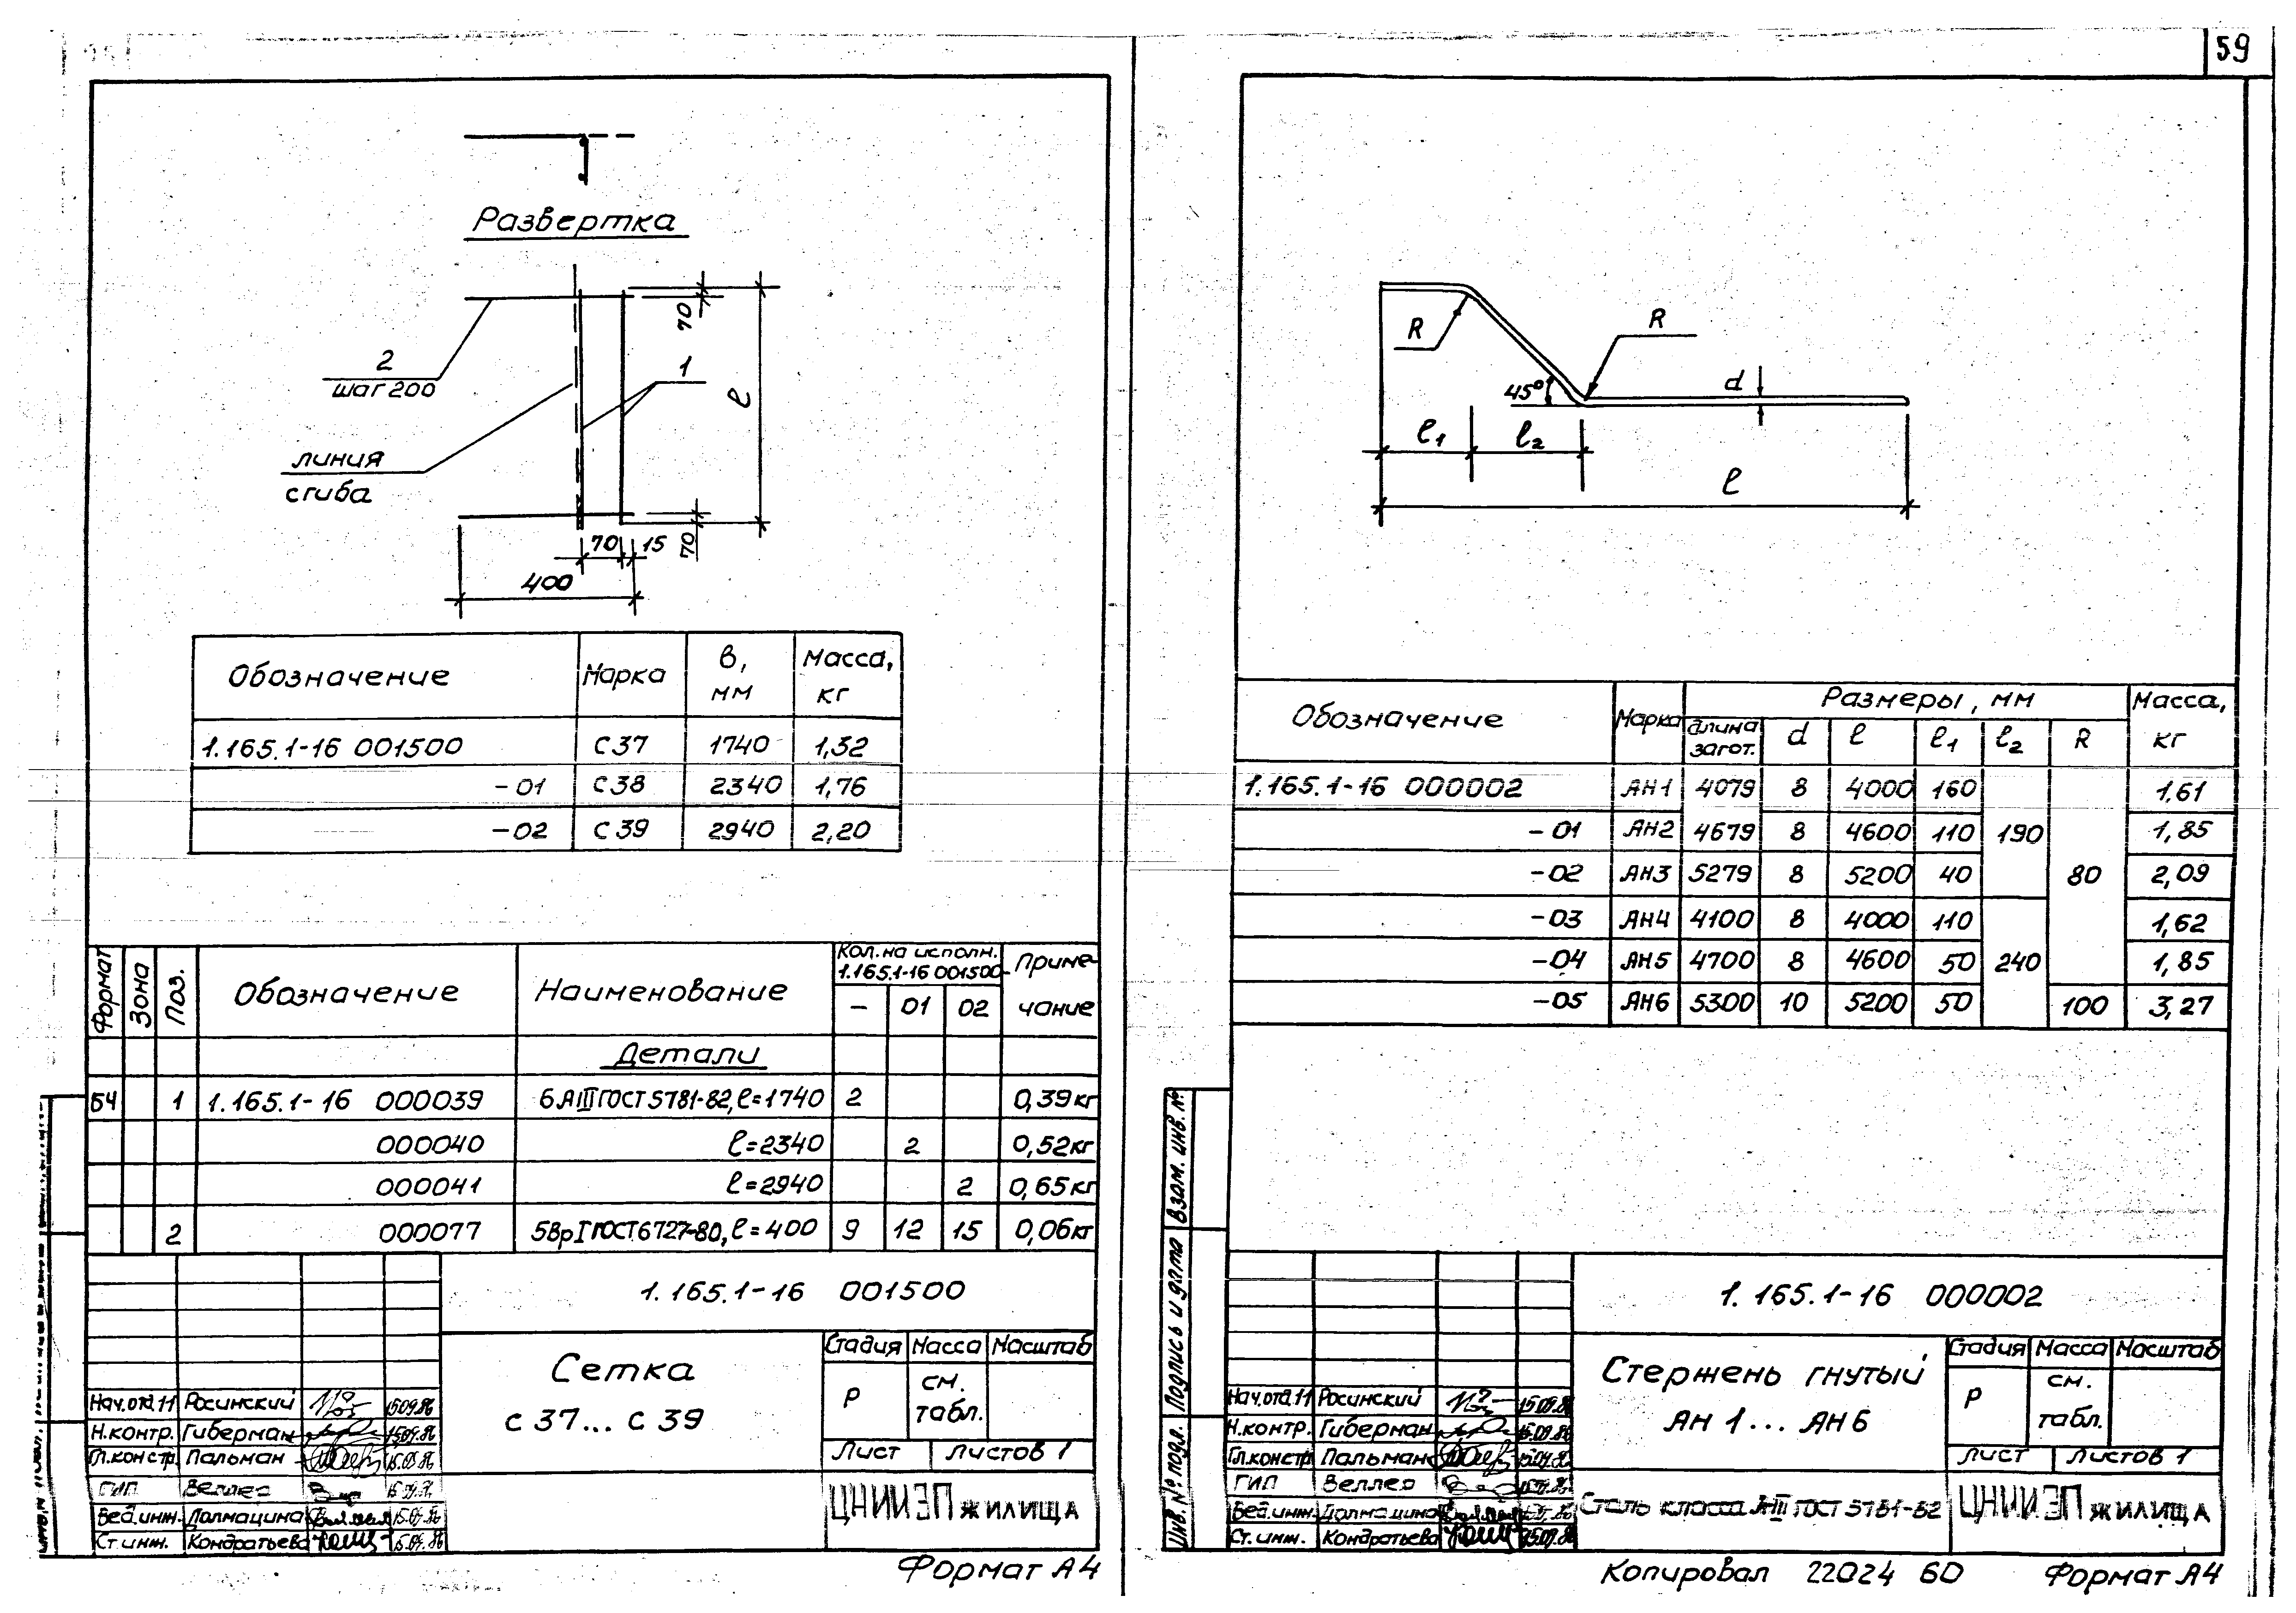 59
Развертка
2
шаг 200
линия
сгиба
1
70
ℓ
70 15
70
400
Обозначение Марка В, мм Масса, кг
1.165.1-16 001500 С37 1740 1,32
-01 С38 2340 1,76
-02 С39 2940 2,20
Формат Зона Поз. Обозначение Наименование Кол. на исполн. 1.165.1-16 001500- Примечание
- 01 02
Детали
БЧ 1 1.165.1-16 000039 6АIII ГОСТ 5781-82, ℓ=1740 2 0,39кг
000040 ℓ=2340 2 0,52кг
000041 ℓ=2940 2 0,65кг
2 000077 5ВрI ГОСТ 6727-80, ℓ=400 9 12 15 0,06кг
1.165.1-16 001500
Сетка
С37... С39
Стадия Масса Масштаб
Р см. табл.
Лист Листов 1
ЦНИИЭП жилища
Нач.отд.11 Росинский 15.09.86
Н.контр. Гиберман 15.09.86
Гл.констр. Пальман 15.09.86
ГИП Веллер
Вед.инж. Долмацина 15.09.86
Ст.инж. Кондратьева 15.09.86
Формат А4
R
R
45°
d
ℓ1 ℓ2
ℓ
Обозначение Марка Размеры, мм Масса, кг
длина загот. d ℓ ℓ1 ℓ2 R
1.165.1-16 000002 АН1 4079 8 4000 160 1,61
-01 АН2 4679 8 4600 110 190 1,85
-02 АН3 5279 8 5200 40 80 2,09
-03 АН4 4100 8 4000 110 1,62
-04 АН5 4700 8 4600 50 240 1,85
-05 АН6 5300 10 5200 50 100 3,27
Инв.№ подл. Подпись и дата Взам. инв.№
1.165.1-16 000002
Стержень гнутый
АН1... АН6
Стадия Масса Масштаб
Р см. табл.
Лист Листов 1
Сталь класса А-III ГОСТ 5781-82
ЦНИИЭП жилища
Нач.отд.11 Росинский 15.09.86
Н.контр. Гиберман 15.09.86
Гл.констр Пальман 15.09.86
ГИП Веллер
Вед.инж. Долмацина
Ст.инж. Кондратьева 15.09.86
Копировал 22024 60 Формат А4